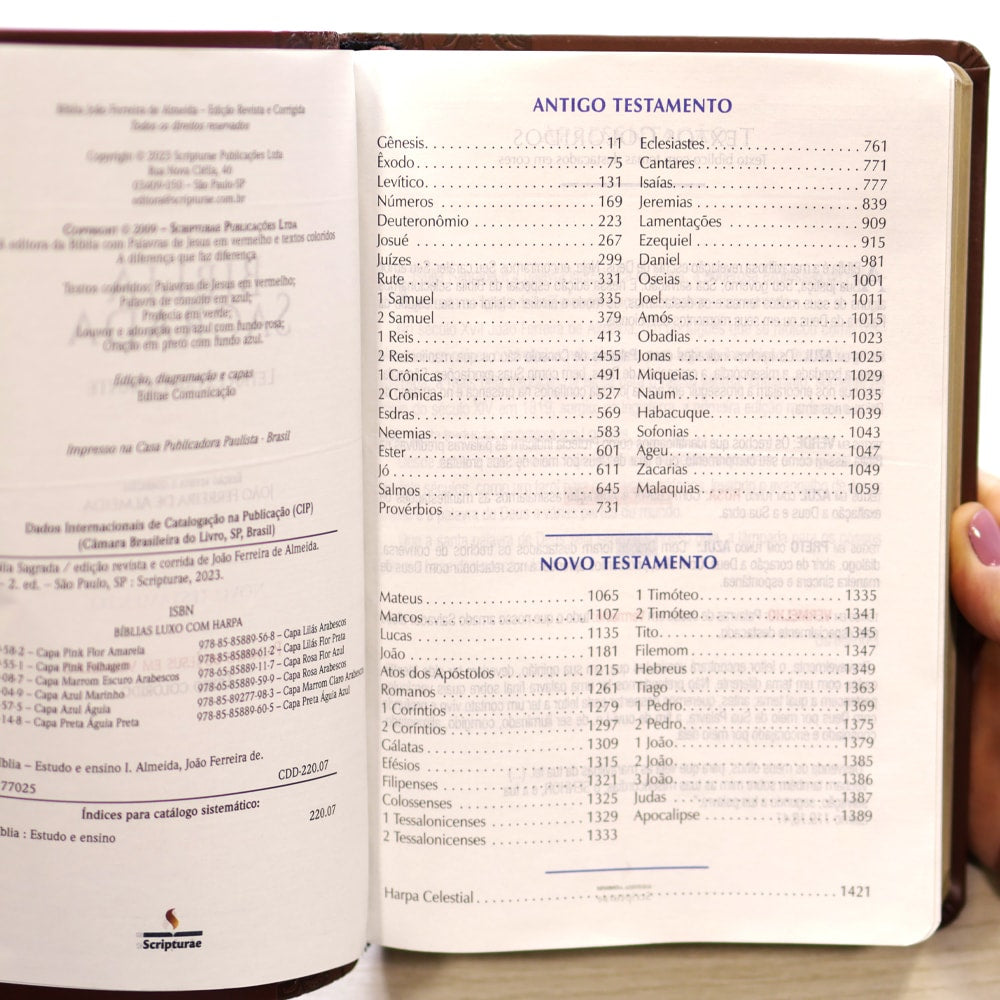 Bíblia João Ferreira de Almeida – Edição Revista e Corrigida
Todos os direitos reservados
Copyright © 2023 Scripturae Publicações Ltda
Rua Nova Clélia, 40
São Paulo-SP
editora@scripturae.com.br
Copyright © 2009 – Scripturae Publicações Ltda
editora da Bíblia com Palavras de Jesus em vermelho e textos coloridos
A diferença que faz diferença
Textos coloridos: Palavras de Jesus em vermelho;
Palavra de consolo em azul;
Profecia em verde;
Louvor e adoração em azul com fundo rosa;
Oração em preto com fundo azul.
Edição, diagramação e capas
Editae Comunicação
Impresso na Casa Publicadora Paulista - Brasil
Dados Internacionais de Catalogação na Publicação (CIP)
(Câmara Brasileira do Livro, SP, Brasil)
lia Sagrada / edição revista e corrida de João Ferreira de Almeida.
– 2. ed. – São Paulo, SP : Scripturae, 2023.
ISBN
BÍBLIAS LUXO COM HARPA
58-2 – Capa Pink Flor Amarela
55-1 – Capa Pink Folhagem
08-7 – Capa Marrom Escuro Arabescos
04-9 – Capa Azul Marinho
57-5 – Capa Azul Águia
14-8 – Capa Preta Águia Preta
978-85-85889-56-8 – Capa Lilás Arabescos
978-85-85889-61-2 – Capa Lilás Flor Prata
978-65-85889-11-7 – Capa Rosa Flor Azul
978-65-85889-59-9 – Capa Rosa Arabescos
978-85-89277-98-3 – Capa Marrom Claro Arabescos
978-85-85889-60-5 – Capa Preta Águia Azul
íblia – Estudo e ensino I. Almeida, João Ferreira de.
77025
CDD-220.07
Índices para catálogo sistemático:
blia : Estudo e ensino
220.07
Scripturae
ANTIGO TESTAMENTO
Gênesis. 11
Êxodo 75
Levítico. 131
Números 169
Deuteronômio 223
Josué 267
Juízes 299
Rute 331
1 Samuel 335
2 Samuel 379
1 Reis 413
2 Reis 455
1 Crônicas 491
2 Crônicas 527
Esdras 569
Neemias 583
Ester 601
Jó 611
Salmos 645
Provérbios 731
Eclesiastes. 761
Cantares 771
Isaías. 777
Jeremias 839
Lamentações 909
Ezequiel 915
Daniel 981
Oseias 1001
Joel. 1011
Amós 1015
Obadias 1023
Jonas 1025
Miqueias. 1029
Naum. 1035
Habacuque. 1039
Sofonias 1043
Ageu. 1047
Zacarias 1049
Malaquias 1059
NOVO TESTAMENTO
Mateus 1065
Marcos 1107
Lucas 1135
João 1181
Atos dos Apóstolos 1215
Romanos 1261
1 Coríntios 1279
2 Coríntios 1297
Gálatas 1309
Efésios 1315
Filipenses 1321
Colossenses 1325
1 Tessalonicenses 1329
2 Tessalonicenses 1333
1 Timóteo 1335
2 Timóteo 1341
Tito. 1345
Filemom 1347
Hebreus 1349
Tiago 1363
1 Pedro. 1369
2 Pedro. 1375
1 João. 1379
2 João. 1385
3 João. 1386
Judas 1387
Apocalipse 1389
Harpa Celestial 1421